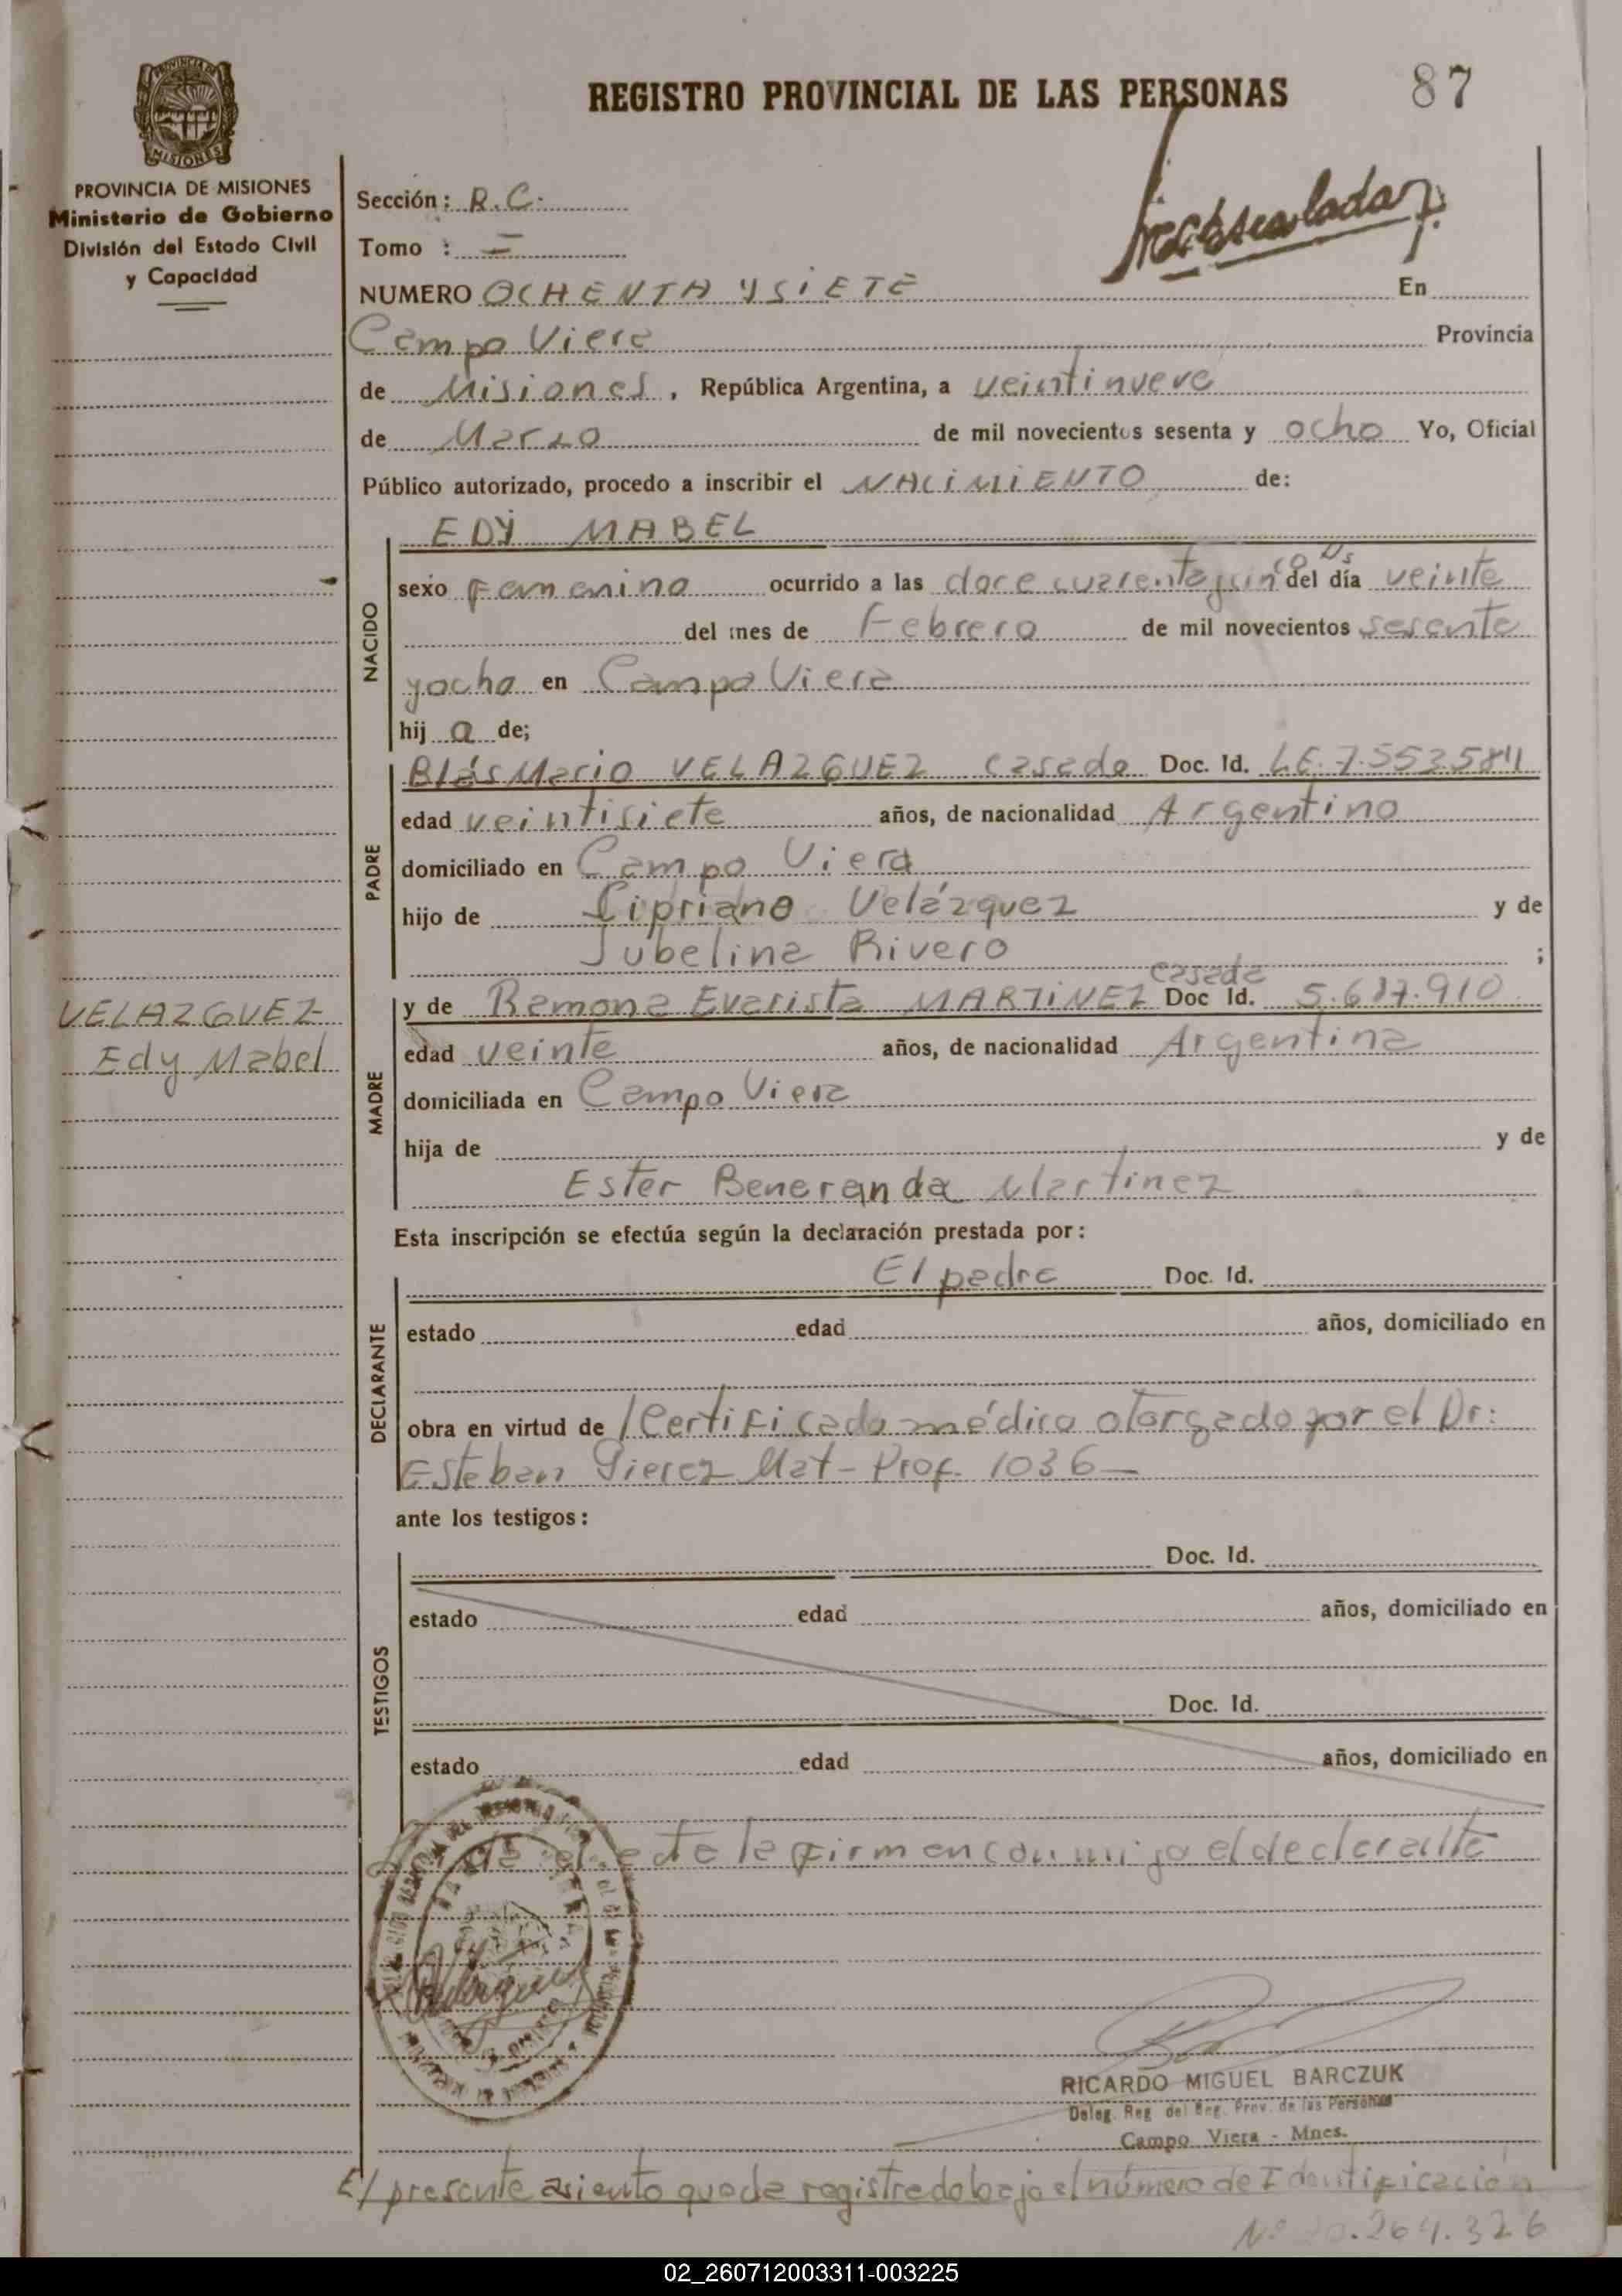 REGISTRO PROVINCIAL DE LAS PERSONAS
87
MISIONES
PROVINCIA DE MISIONES
Ministerio de Gobierno
División del Estado Civil
y Capacidad
Sección: R.C.
Tomo : I
NUMERO OCHENTA Y SIETE En
Campo Viera Provincia
de Misiones, República Argentina, a veintinueve
de Marzo de mil novecientos sesenta y ocho Yo, Oficial
Público autorizado, procedo a inscribir el NACIMIENTO de:
EDY MABEL
NACIDO
sexo Femenino ocurrido a las doce cuarenta y cinco Hs del día veinte
del mes de Febrero de mil novecientos sesenta
y ocho en Campo Viera
hij a de;
PADRE
Blás Mario VELAZQUEZ casado Doc. Id. LE. 7.553.584
edad veintisiete años, de nacionalidad Argentino
domiciliado en Campo Viera
hijo de Cipriano Velázquez y de
Jubelina Rivero ;
VELAZQUEZ
Edy Mabel
MADRE
casada
y de Ramona Evarista MARTINEZ Doc Id. 5.687.910
edad veinte años, de nacionalidad Argentina
domiciliada en Campo Viera
hija de y de
Ester Beneranda Martinez
Esta inscripción se efectúa según la declaración prestada por:
DECLARANTE
El padre Doc. Id.
estado edad años, domiciliado en
obra en virtud de Certificado médico otorgado por el Dr:
Esteban Mat-Prof. 1036-
ante los testigos:
TESTIGOS
Doc. Id.
estado edad años, domiciliado en
Doc. Id.
estado edad años, domiciliado en
la firman conmigo el declarante
RICARDO MIGUEL BARCZUK
Deleg. Reg del Reg. Prov. de las Personas
Campo Viera - Mnes.
El presente asiento queda registrado bajo el número de Identificación
Nº 20.264.326
02_260712003311-003225